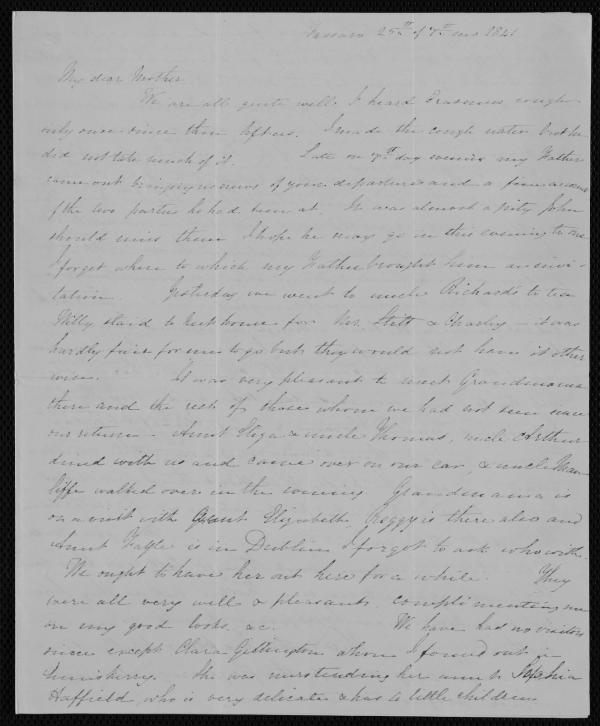 25th of 7th mo 1841
My dear Mother
We are all quite well. I heard Erasmus cough
only once since thou left us. I made the cough water but he
did not take much of it. Late on 7th day evening my Father
came out bringing us news of your departure and a fine account
of the two parties he had been at. It was almost a pity John
should miss them I hope he may go in this evening to one
I forget where to which my Father brought him an invi-
tation. Yesterday we went to uncle Richard's to tea
Willy staid to keep home for & Charley - it was
hardly fair for me to go but they would not have it other
wise. It was very pleasant to meet Grandmama
there and the rest of those whom we had not seen since
our return - Aunt Eliza & uncle Thomas, uncle Arthur
dined with us and came over on our car, & uncle
walked over in the evening Grandmama is
on a visit with Aunt Elizabeth, Peggy is there also and
Aunt is in Dublin I forgot to ask who with.
We ought to have her out here for a while. They
were all very well & pleasant, complimenting me
on my good looks &c. We have had no visitors
since except Clara whom I found out in
Enniskerry. She was
who is very delicate & has 4 little children